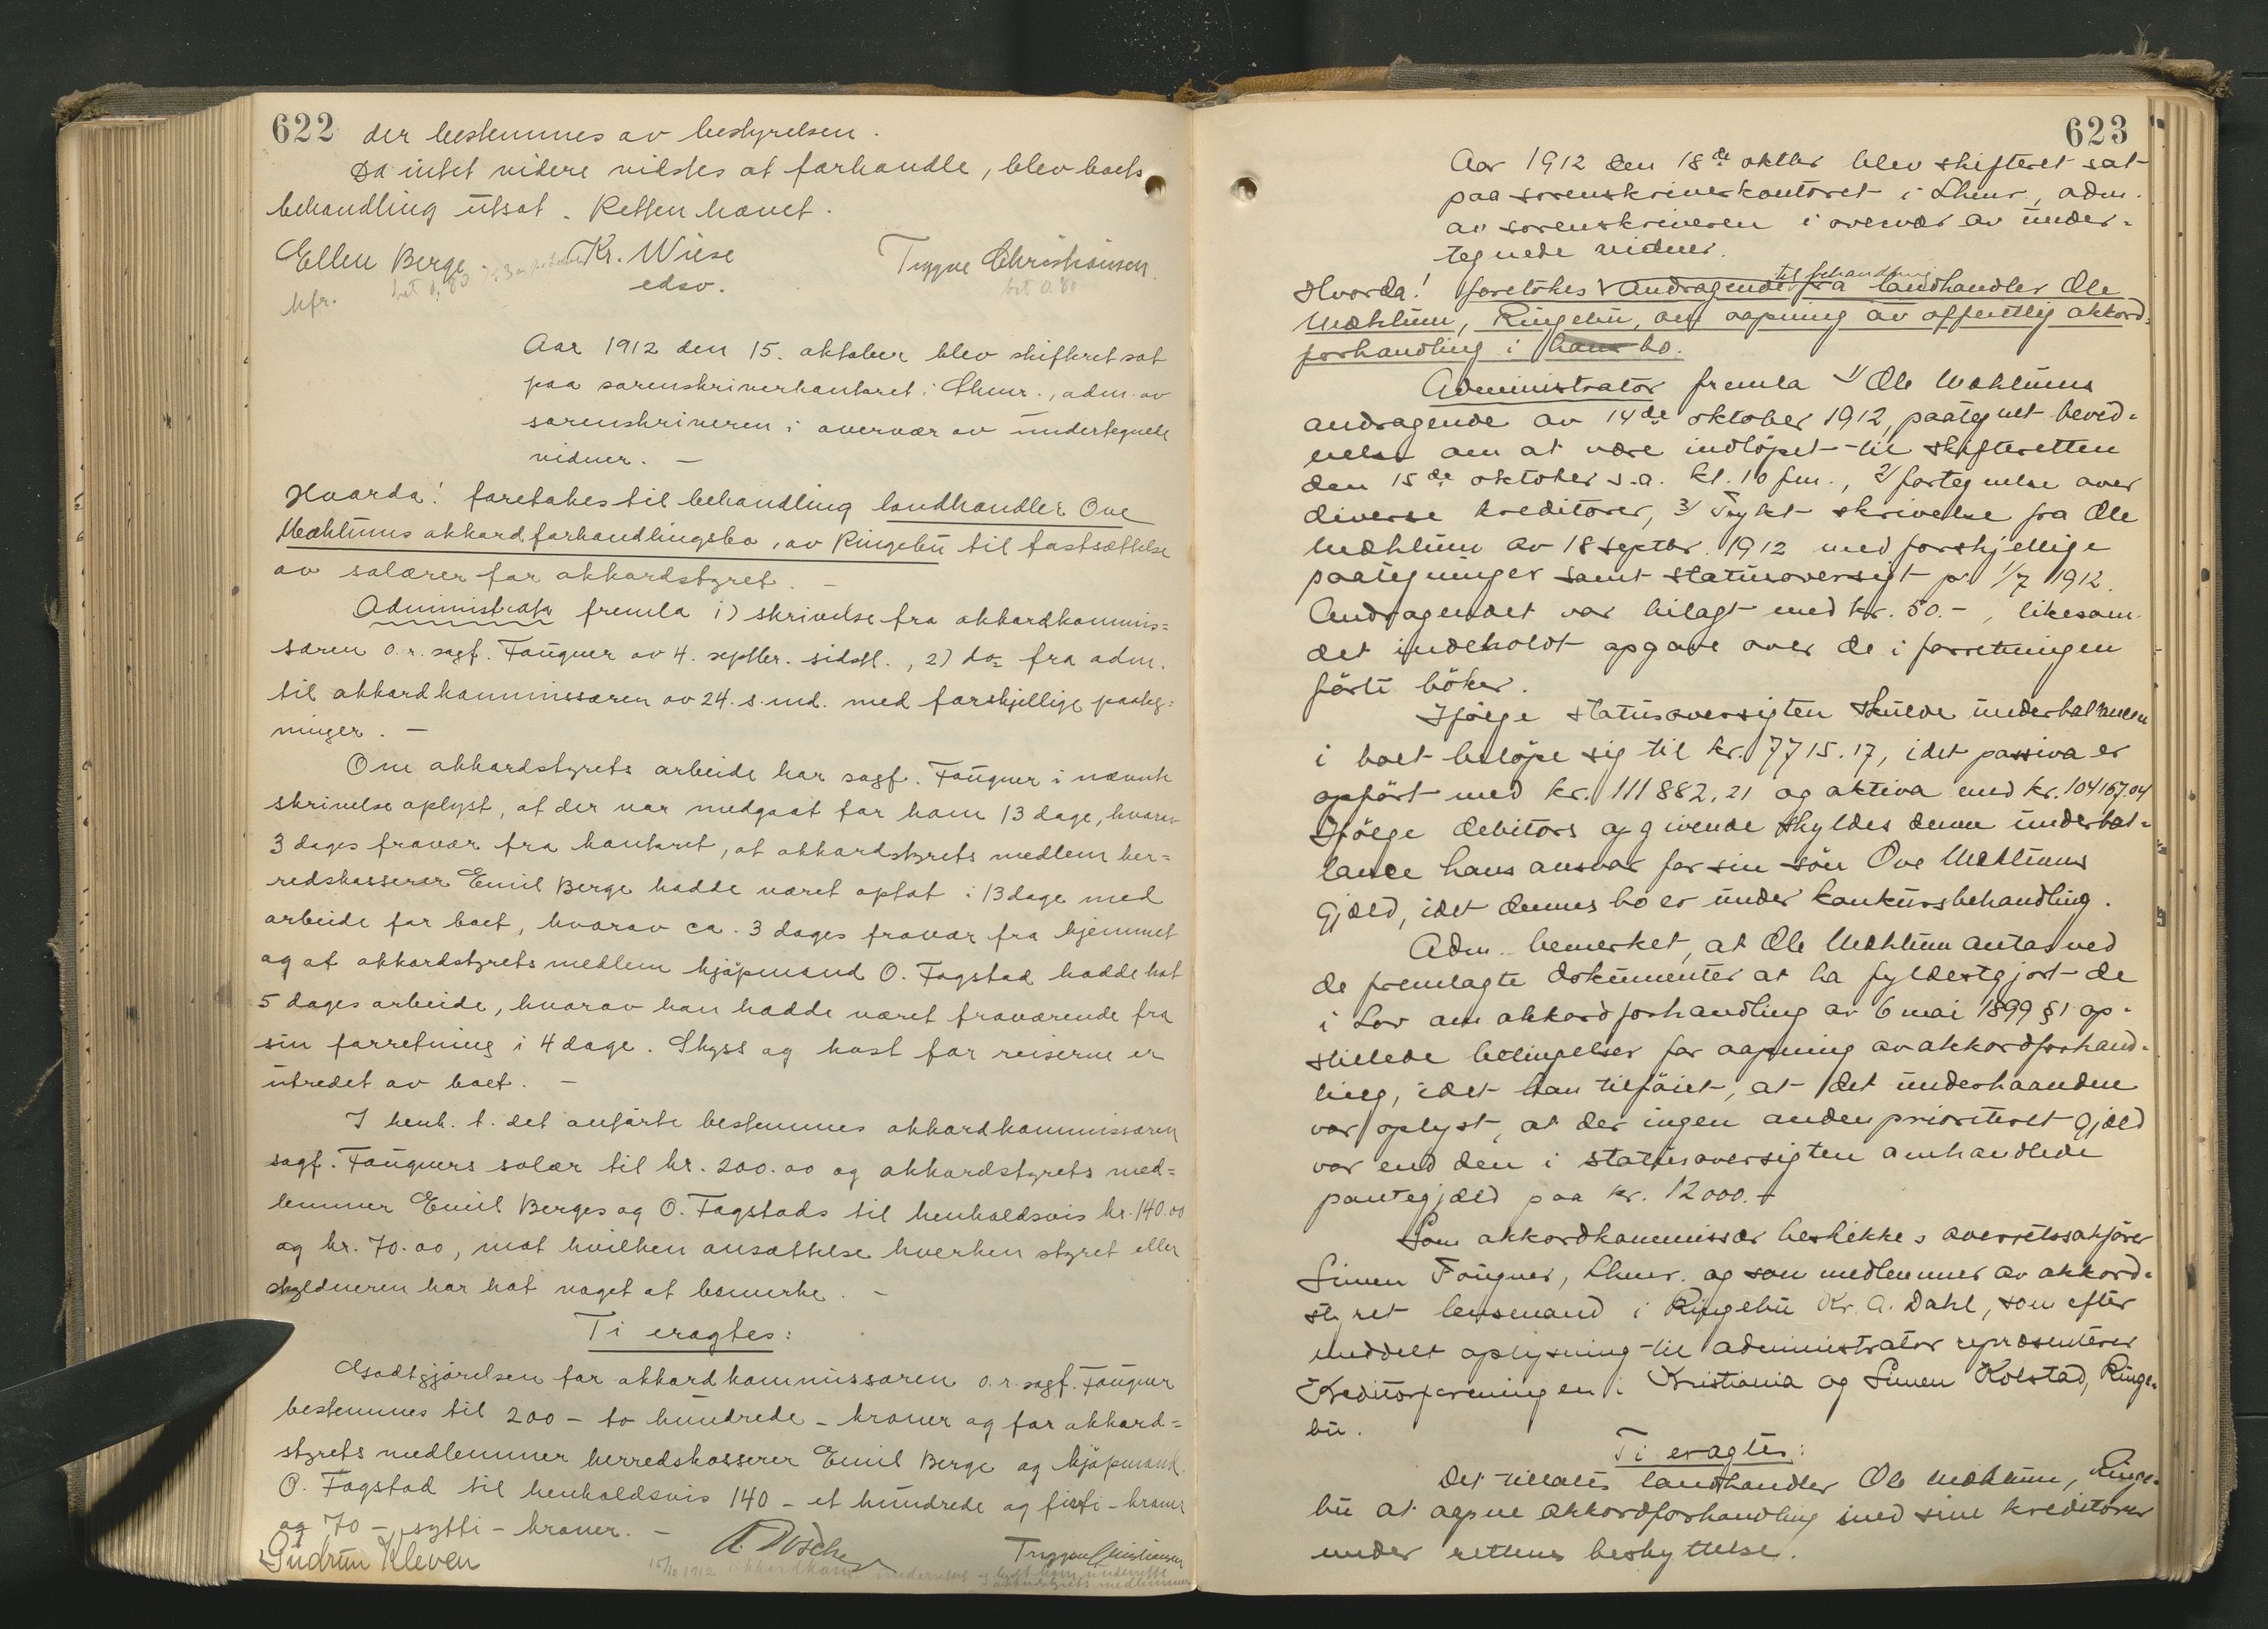 622 der bestemmes av bestyrelsen.
Da intet videre vilstes at forhandle, blev boets
behandling utsat. Retten hævet.
Ellen Berge. Kr. Wiese Trygve Christiansen
kfr. edsv. bet 0.80
Aar 1912 den 15. oktober blev skifteret sat
paa sorenskriverkontoret i Lhmr., adm. av
sorenskriveren i overvær av undertegnede
vidner. —
Hvorda! foretokes til behandling landhandler Ove
Mæhlums akkordforhandlingsbo, av Ringebu til fastsættelse
av salærer for akkordstyret. —
Administrator fremla 1) skrivelse fra akkordkommis=
særen o.r. sagf. Fougner av 4. septbr. sidstl., 2) do= fra adm.
til akkordkommissæren av 24. s. md. med forskjellige paateg=
ninger. —
Om akkordstyrets arbeide har sagf. Fougner i nævnte
skrivelse oplyst, at der var medgaat for ham 13 dage, hvorav
3 dages fravær fra kontoret, at akkordstyrets medlem her=
redskasserer Emil Berge hadde været optat i 13 dage med
arbeide for boet, hvorav ca. 3 dages fravær fra hjemmet
og at akkordstyrets medlem kjøpmand O. Fagstad hadde hat
5 dages arbeide, hvorav han hadde været fraværende fra
sin forretning i 4 dage. Skyss og kost for reiserne er
utredet av boet. —
I henh. t. det anførte bestemmes akkordkommissæren
sagf. Fougners salær til kr. 200.00 og akkordstyrets med=
lemmer Emil Berges og O. Fagstads til henholdsvis kr. 140.00
og kr. 70.00, mot hvilken ansættelse hverken styret eller
skyldneren har hat noget at bemerke. —
Ti eragtes:
Godtgjørelsen for akkordkommissæren o.r. sagf. Fougner
bestemmes til 200 – to hundrede – kroner og for akkord=
styrets medlemmer herredskasserer Emil Berge og kjøpmand
O. Fagstad til henholdsvis 140 – et hundrede og firti – kroner
og 70 – sytti – kroner. —
Gudrun Kleven Trygve Christiansen
15/10 1912 akkordkom. underrettet
akkordstyrets medlemmer
623
Aar 1912 den 18de oktbr blev skifteret sat
paa sorenskriverkontoret i Lhmr., adm.
av sorenskriveren i overvær av under=
tegnede vidner.
Hvorda! foretokes til behandling andragende fra landhandler Ole
Mæhlum, Ringebu, om aapning av offentlig akkord=
forhandling i hans bo.
Administrator fremla 1/ Ole Mæhlums
andragende av 14de oktober 1912, paategnet bevid=
nelse om at være indløpet til skifteretten
den 15de oktober s.a. kl. 10 fm., 2/ fortegnelse over
diverse kreditorer, 3/ Trykt skrivelse fra Ole
Mæhlum av 18 septbr. 1912 med forskjellige
paategninger samt statusoversigt pr. 1/7 1912.
Andragendet var bilagt med kr. 50.–, likesom
det indeholdt opgave over de i forretningen
førte bøker.
Ifølge statusoversigten skulde underballancen
i boet beløpe sig til kr. 7715.17, idet passiva er
opført med kr. 111882,21 og aktiva med kr. 104167.04
Ifølge debitors opgivende skyldes denne underbal=
lance hans ansvar for sin søn Ove Mæhlums
gjæld, idet dennes bo er under konkursbehandling.
Adm. bemerket, at Ole Mæhlum antas ved
de fremlagte dokumenter at ha fyldestgjort de
i Lov om akkordforhandling av 6 mai 1899 § 1 op=
stillede betingelser for aapning av akkordforhand=
ling, idet han tilføiet, at det underhaanden
var oplyst, at der ingen anden prioritert gjæld
var end den i statusoversigten omhandlede
pantegjæld paa kr. 12000.–
Som akkordkommissær beskikkes overretssakfører
Simen Fougner, Lhmr. og som medlemmer av akkord=
styret lensmand i Ringebu Kr. A. Dahl, som efter
meddelt oplysning til administrator repræsenterer
Kreditorforeningen i Kristiania og Simen Kolstad, Ringe=
bu.
Ti eragtes:
Det tillates landhandler Ole Mæhlum, Ringe=
bu at aapne akkordforhandling med sine kreditorer
under rettens beskyttelse.